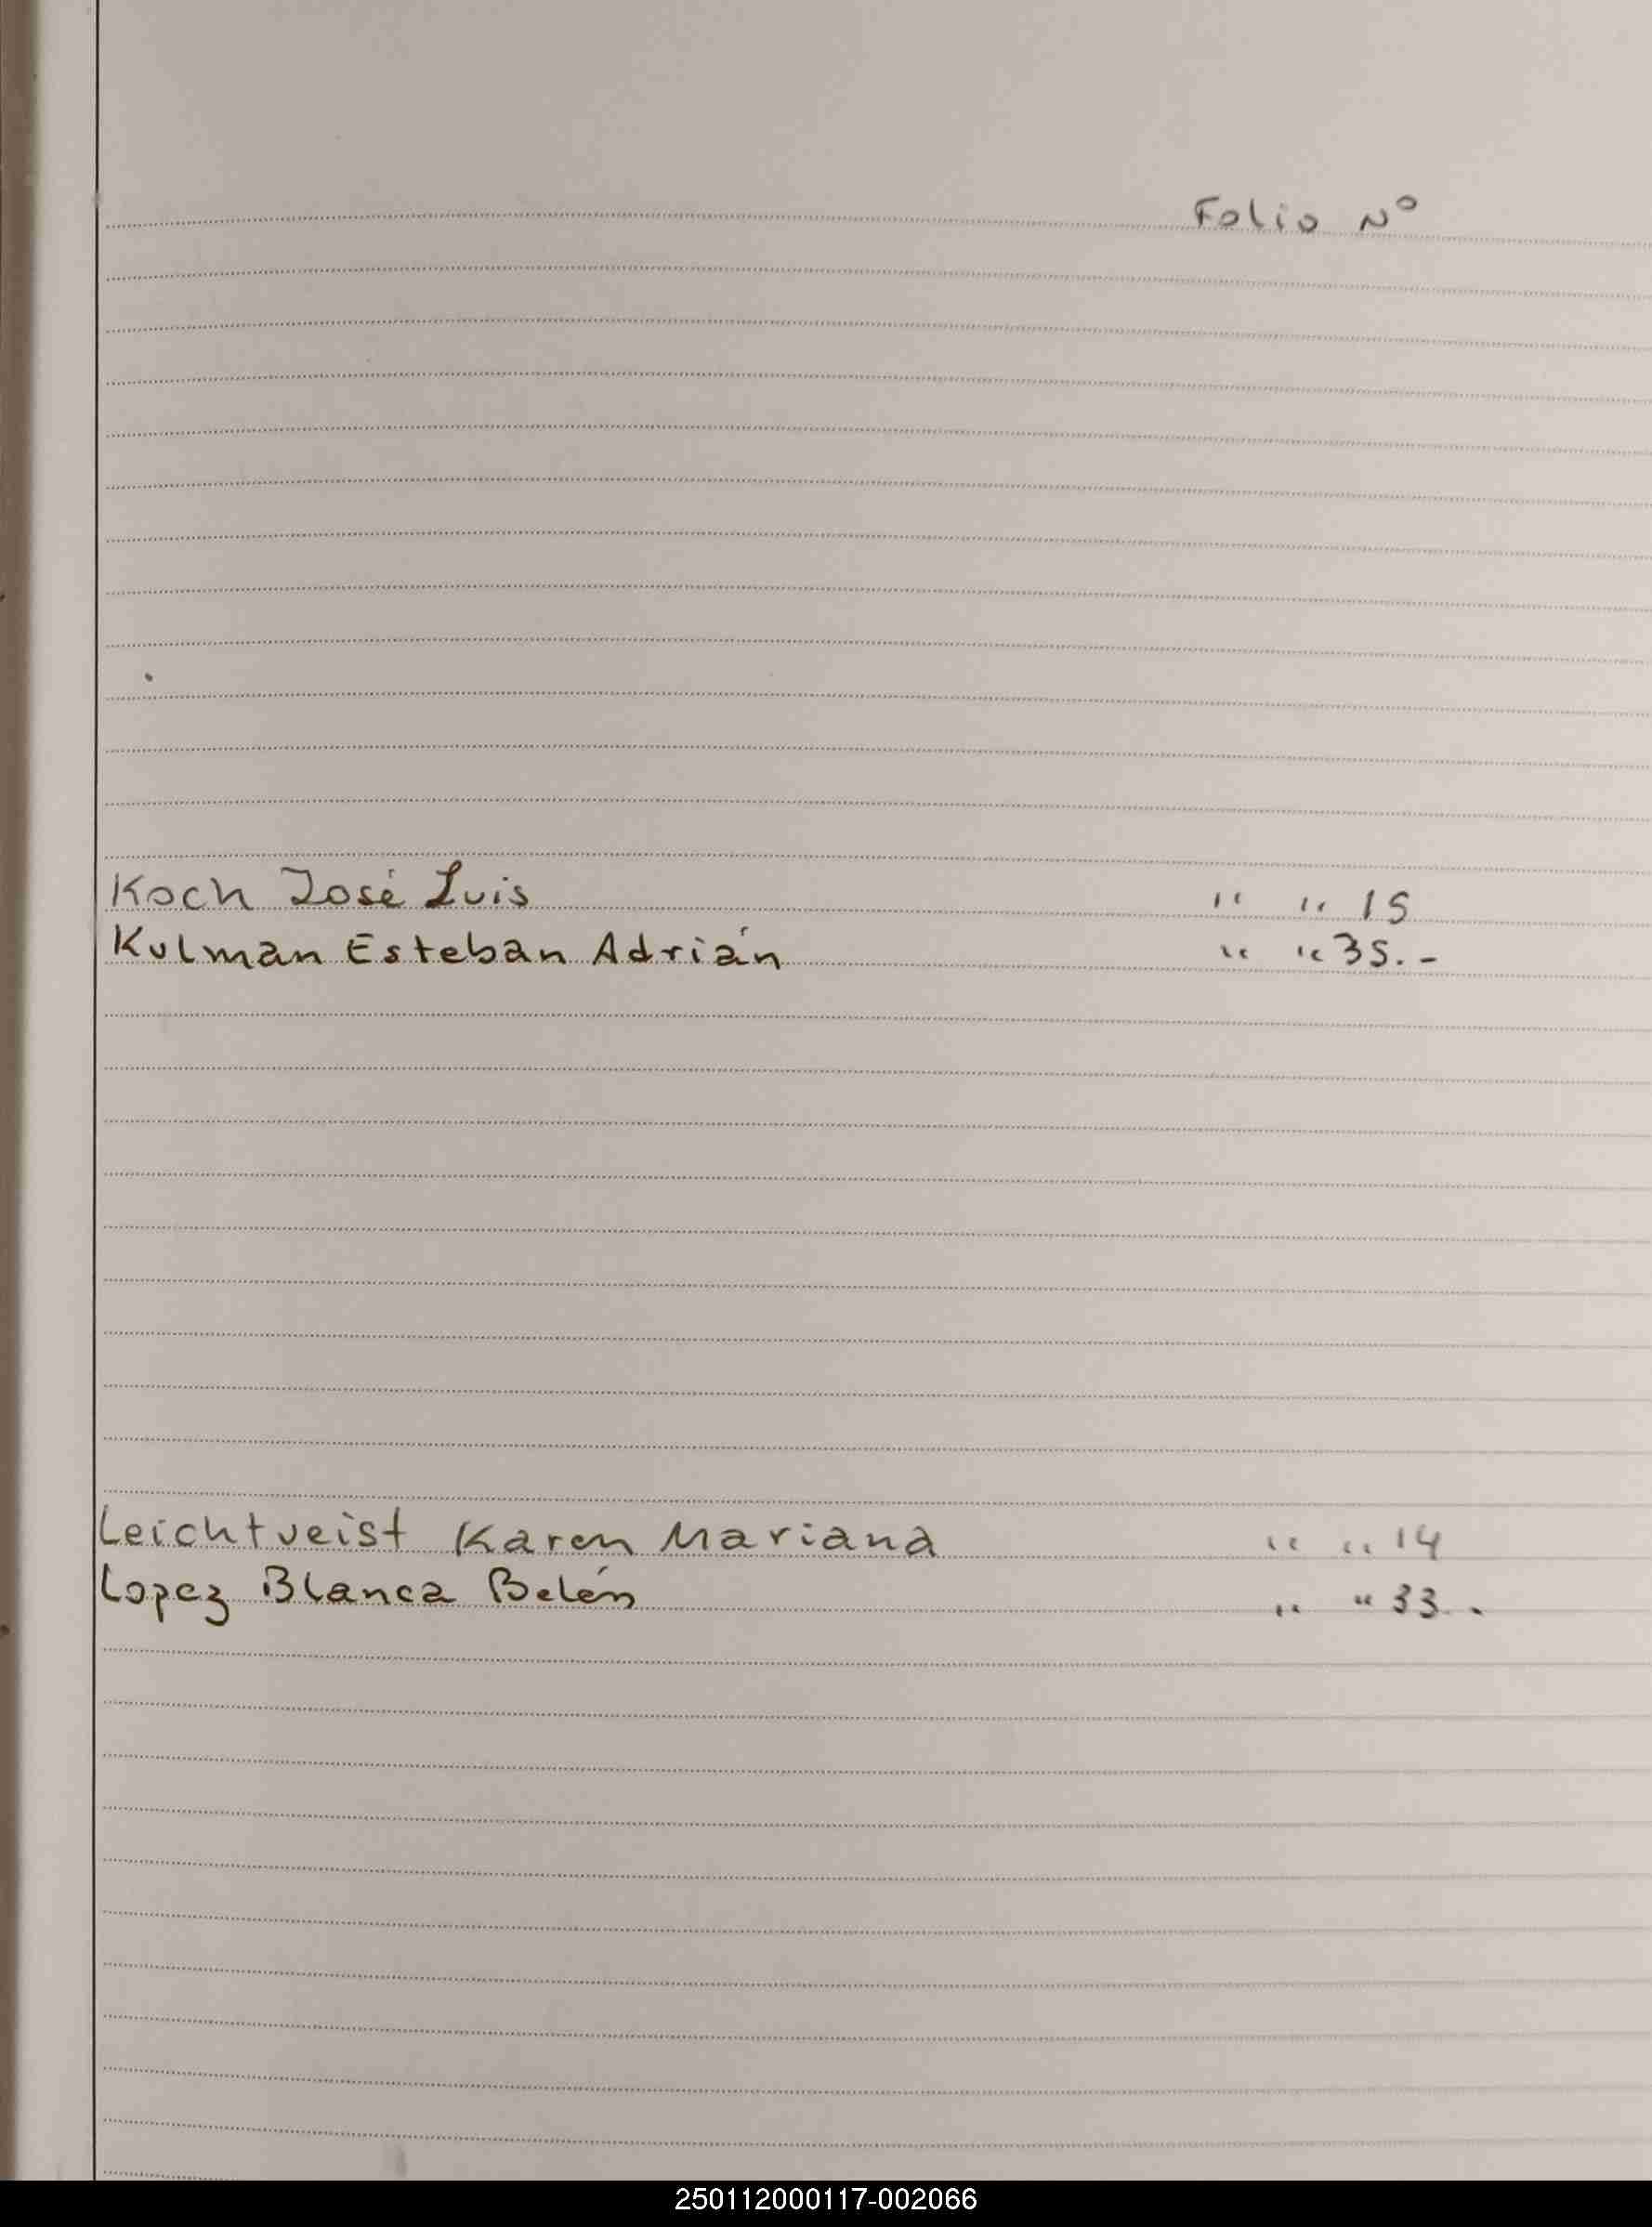 Folio Nº
Koch José Luis " " 15
Kulman Esteban Adrián " " 35.-
Leichtveist Karen Mariana " " 14
Lopez Blanca Belén " " 33.
250112000117-002066